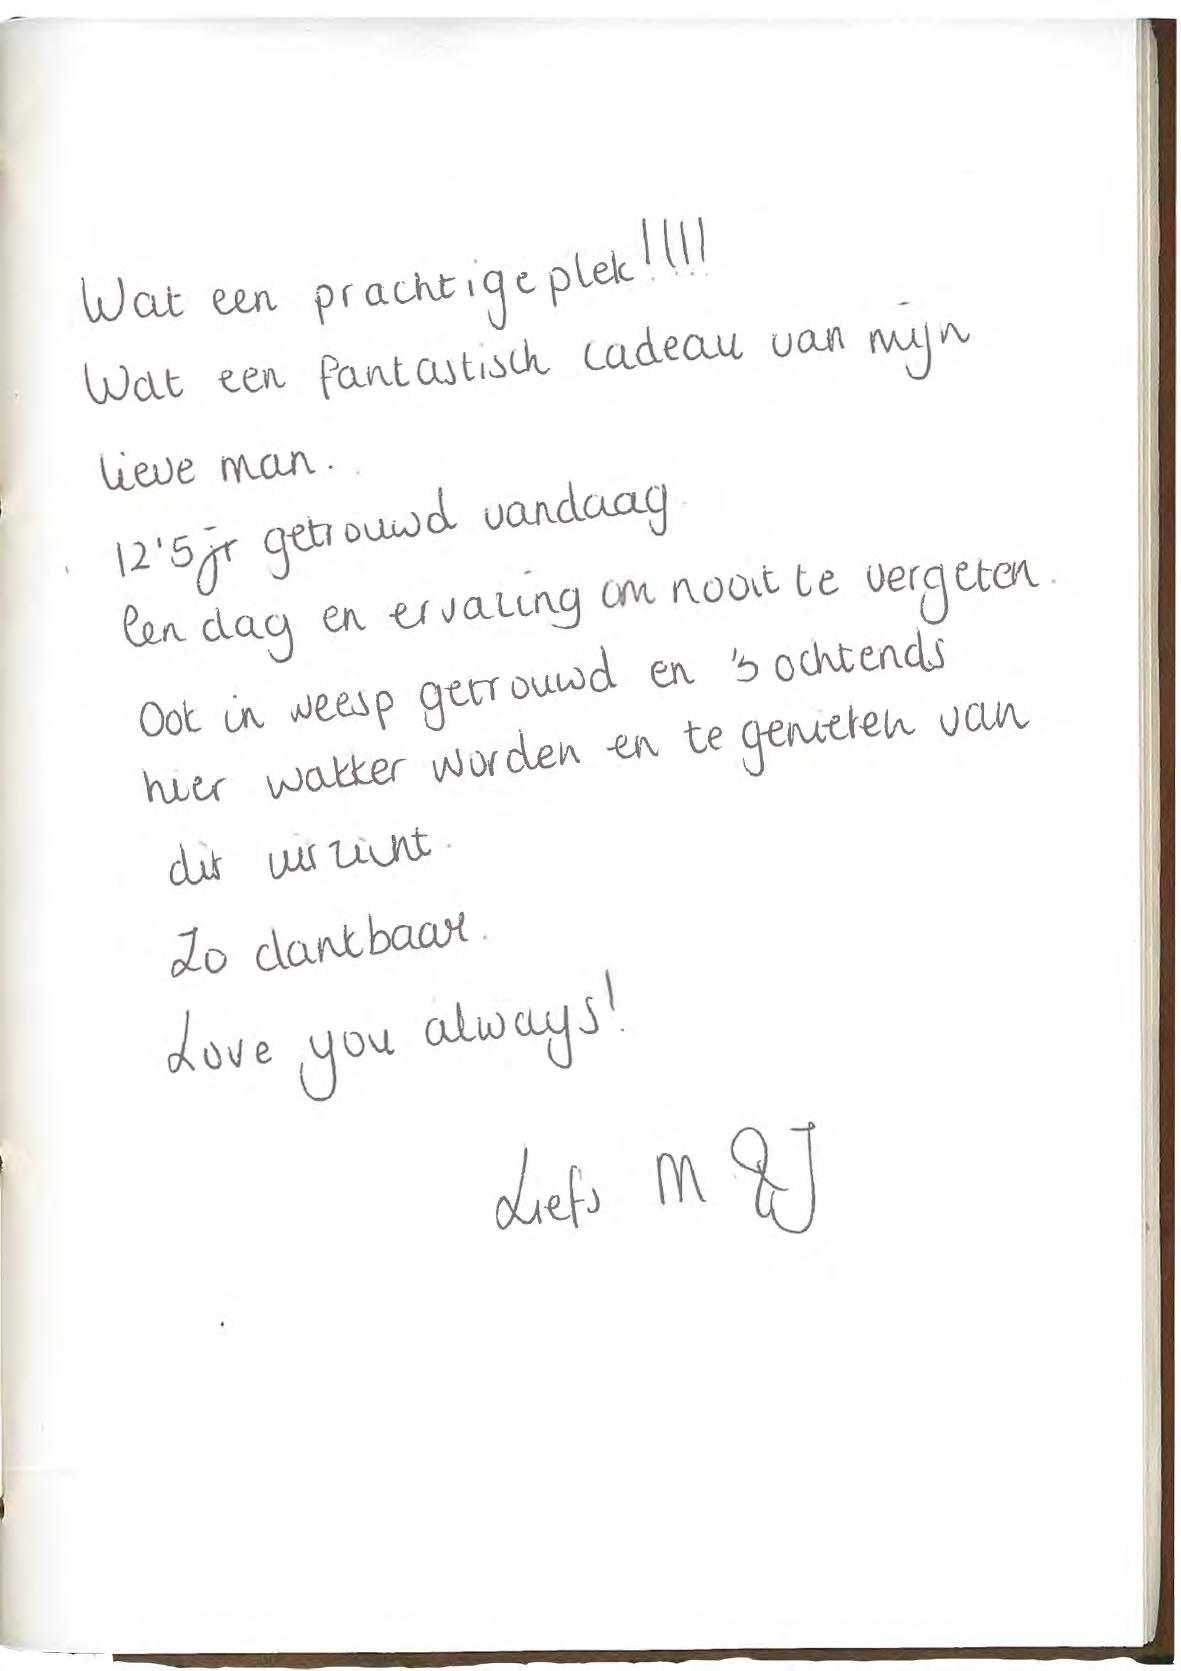 Wat een prachtige plek!!!!
Wat een fantastisch cadeau van mijn
lieve man.
12'5 jr getrouwd vandaag.
Een dag en ervaring om nooit te vergeten.
Ook in weesp getrouwd en 's ochtends
hier wakker worden en te genieten van
dit uitzicht.
Zo dankbaar.
Love you always!
Liefs M & J